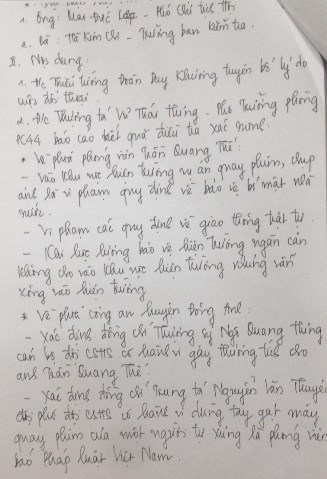 1. Ông: Mai Đức Lộc - Phó Chủ tịch TT
2. Bà: Hồ Kim Chi - Trưởng ban kiểm tra.
II. Nội dung:
1. Đ/c Thiếu tướng Đoàn Duy Khương tuyên bố lý do
cuộc đối thoại.
2. Đ/c Thượng tá Vũ Thái Hưng - Phó Trưởng phòng
PC44 báo cáo kết quả điều tra xác minh:
* Về phía phóng viên Trần Quang Thế:
- Vào khu vực hiện trường vụ án quay phim, chụp
ảnh là vi phạm quy định về bảo vệ bí mật nhà
nước.
- Vi phạm các quy định về giao thông trật tự.
- Khi lực lượng bảo vệ hiện trường ngăn cản
không cho vào khu vực hiện trường nhưng vẫn
xông vào hiện trường.
* Về phía công an huyện Đông Anh:
- Xác định đồng chí Thượng sỹ Ngô Quang Hưng
cán bộ đội CSHS có hành vi gây thương tích cho
anh Trần Quang Thế.
- Xác định đồng chí Trung tá Nguyễn Văn Thuyên
đội phó đội CSHS có hành vi dùng tay gạt máy
quay phim của một người tự xưng là phóng viên
báo Pháp luật Việt Nam.